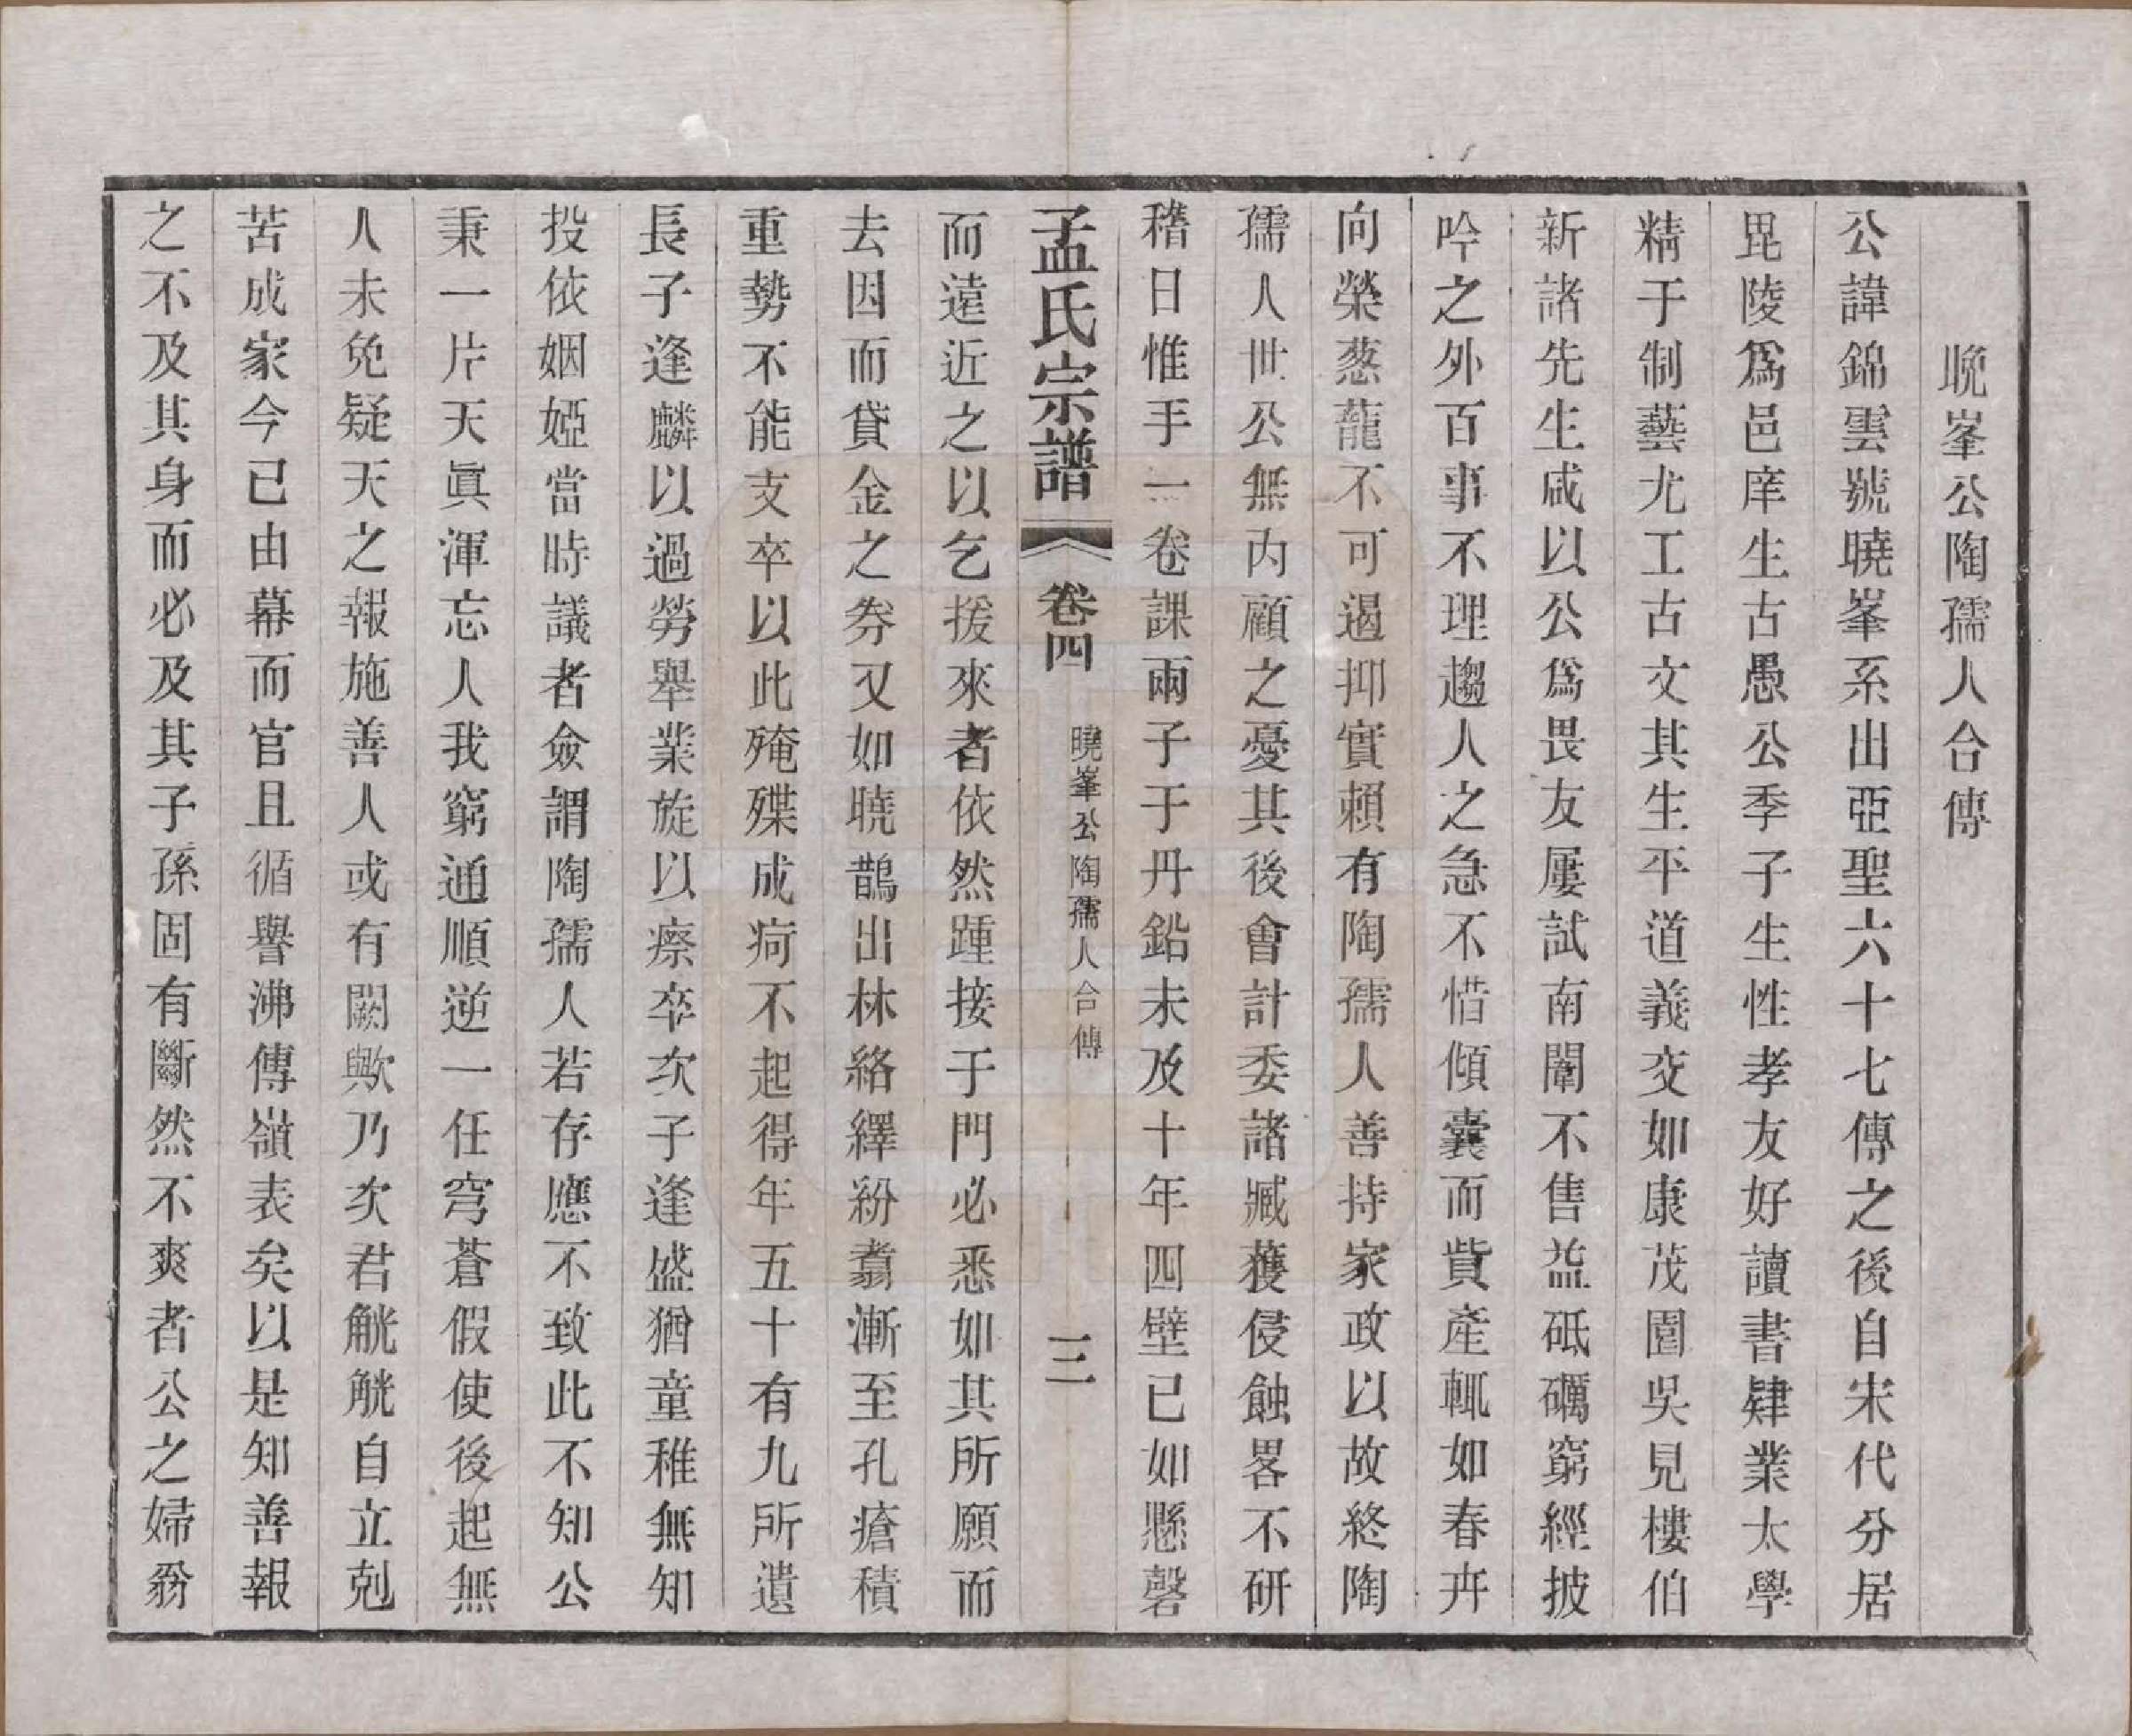 晩峯公陶孺人合傳
公諱錦雲號曉峯系出亞聖六十七傳之後自宋代分居
毘陵爲邑庠生古愚公季子生性孝友好讀書肄業太學
精于制藝尤工古文其生平道義交如康茂園吳見樓伯
新諸先生咸以公爲畏友屢試南闈不售益砥礪窮經披
吟之外百事不理趨人之急不惜傾囊而貲產輒如春卉
向榮葱蘢不可遏抑實賴有陶孺人善持家政以故終陶
孺人世公無內顧之憂其後會計委諸臧獲侵蝕畧不研
稽日惟手一卷課兩子于丹鉛未及十年四壁已如懸磬
孟氏宗譜 卷四 曉峯公陶孺人合傳 三
而遠近之以乞援來者依然踵接于門必悉如其所願而
去因而貸金之券又如曉鵲出林絡繹紛翥漸至孔瘡積
重勢不能支卒以此殗殜成疴不起得年五十有九所遺
長子逢麟以過勞舉業旋以瘵卒次子逢盛猶童稚無知
投依姻婭當時議者僉謂陶孺人若存應不致此不知公
秉一片天眞渾忘人我窮通順逆一任穹蒼假使後起無
人未免疑天之報施善人或有闕歟乃次君觥觥自立剋
苦成家今已由幕而官且循譽沸傳嶺表矣以是知善報
之不及其身而必及其子孫固有斷然不爽者公之婦翁